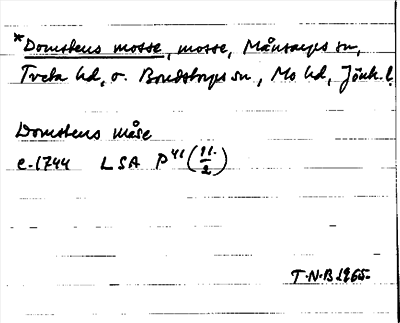 *Domstens mosse, mosse, Månsarps sn,
Tveta hd, o. Bondstorps sn, Mo hd, Jönk. l.
Domstens måse
c. 1744 LSA P41 (11/2)
T.N.B 1965